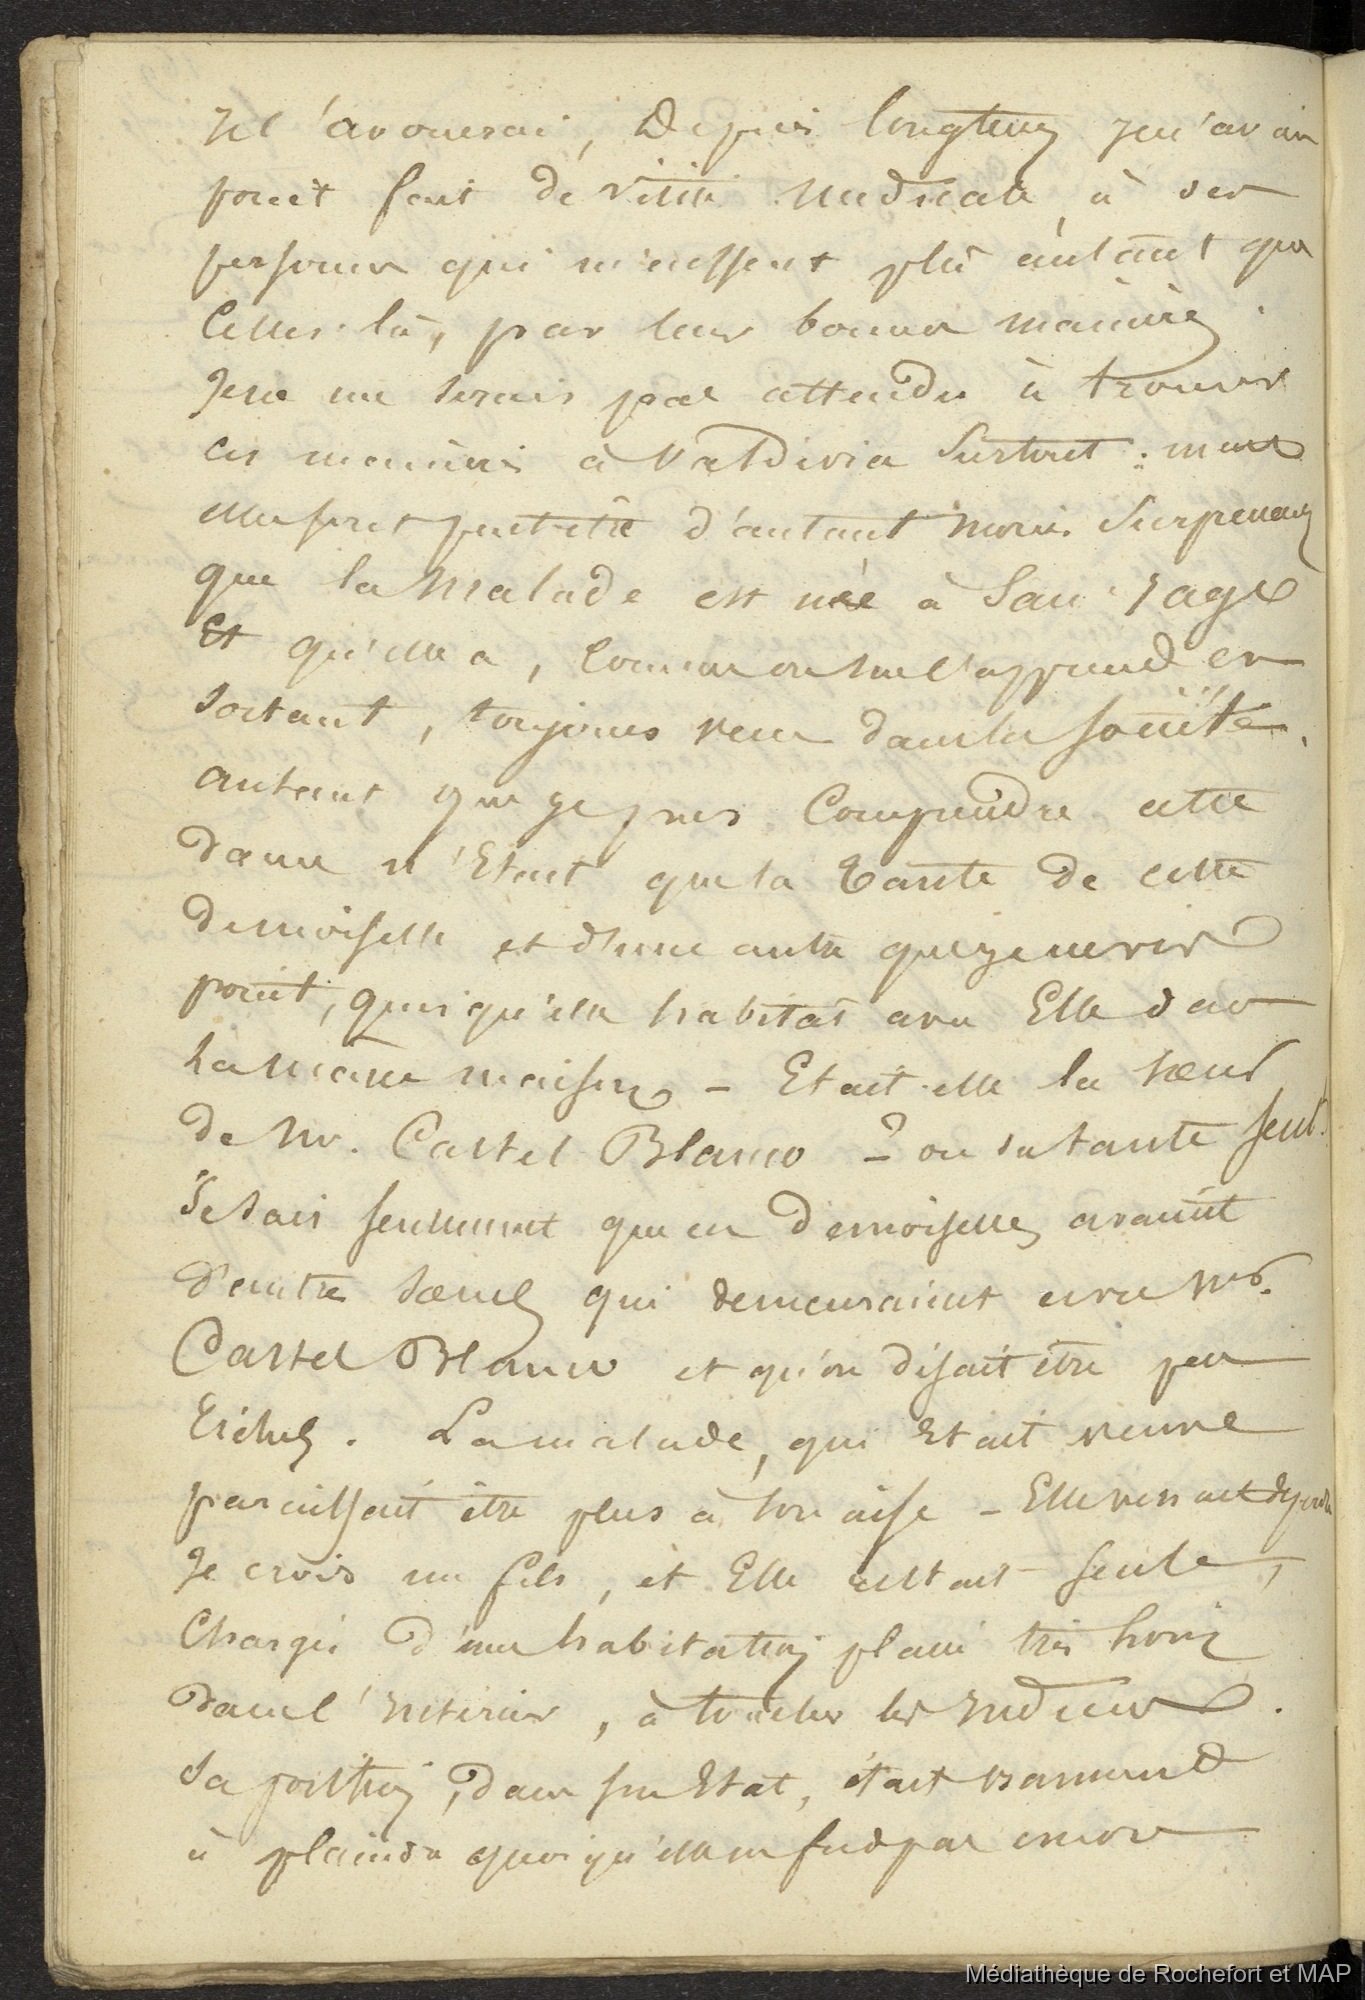 Je l'avouerai, Depuis longtems je n'avais
point fait de visite medicale à des
personnes qui m'eussent plû autant que
Celles-là, par leur bonnes manières.
Je ne me serais pas attendu à trouver
ces manières à Valdivia Surtout : mais
elles sont peut-être d'autant moins Surprenantes
que la Malade est née à San Yago
Et qu'elle a, comme on me l'apprend en
sortant, toujours vécu dans la société.
autant que je puis Comprendre cette
dame n'Etait que la tante de cette
demoiselle et d'une autre que je ne vis
point, quoiqu'elle habitât avec Elle dans
la même maison - Etait-elle la soeur
de Mr. Castel Blanco - ? ou sa tante seult.
Je sais seulement que ces demoiselles avaient
d'autres soeurs qui demeuraient avec Mr.
Castel Blanco et qu'on disait être peu
riches. La malade, qui Etait veuve
paraissait être plus à son aise - Elle
Je crois un fils, et Elle restait seule,
Chargée d'une habitation placée très loin
dans l'intérieur, à toucher les Indiens.
Sa position, dans son Etat, était vraiment
à plaindre quoiqu'elle ne fut pas encore
Médiathèque de Rochefort et MAP